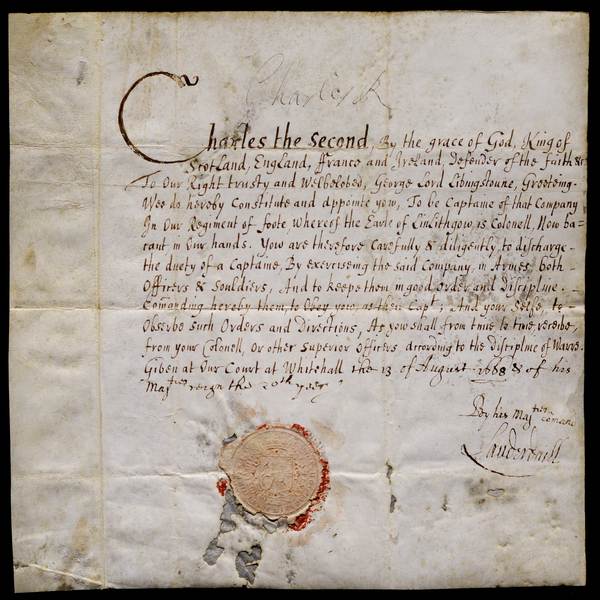 Charles R
Charles the second, By the grace of God, King of
Scotland, England, ffrance and Ireland, Defender of the faith &c
To Our Right trusty and Welbelobed, George Lord Libingstoune, Greeteing.
Wee do hereby Constitute and appointe yow, To be Captaine of that Company
In Our Regiment of foote, whereof the Earle of Linlithgow is Colonell, Now ba=
cant in Our hands. Yow are therefore Carefully & diligently, to discharge
the duety of a Captaine, By exerciseing the said Company, in Armes, both
Officers & Souldiers, And to keepe them in good Order and Discipline.
Comanding hereby them, to Obey yow, as their Capt; And your Selfe, to
Observe Such Orders and Directions, As yow shall from time, to time, receibe,
from your Colonell, or other Superior Officers, according to the Discipline of Warre.
Giben at Our Court at Whitehall the 13 of August 1668 & of his
Majties reign the 20th yeer
By his Majties comand
Lauderdaill